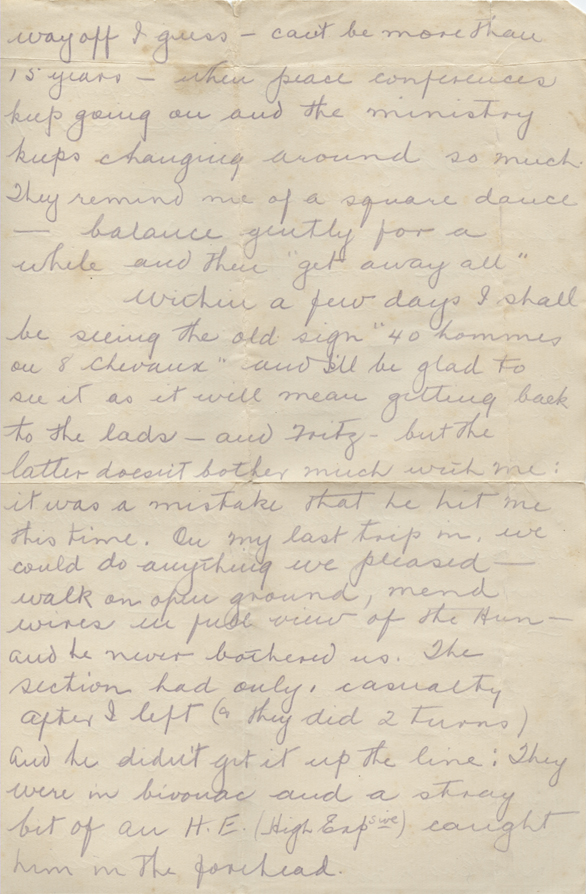 way off I guess – can't be more than
15 years – when peace conferences
keep going on and the ministry
keeps changing around so much.
They remind me of a square dance
— balance gently for a
while and then "get away all"
Within a few days I shall
be seeing the old sign "40 hommes
ou 8 Chevaux" and I'll be glad to
see it as it will mean getting back
to the lads – and Fritz – but the
latter doesn't bother much with me:
it was a mistake that he hit me
this time. On my last trip in, we
could do anything we pleased —
walk on open ground, mend
wires in full view of the Hun —
and he never bothered us. The
section had only 1 casualty
after I left (& they did 2 turns)
and he didn't get it up the line: They
were in bivouac and a stray
bit of an H.E. (High Expsive) caught
him in the forehead.